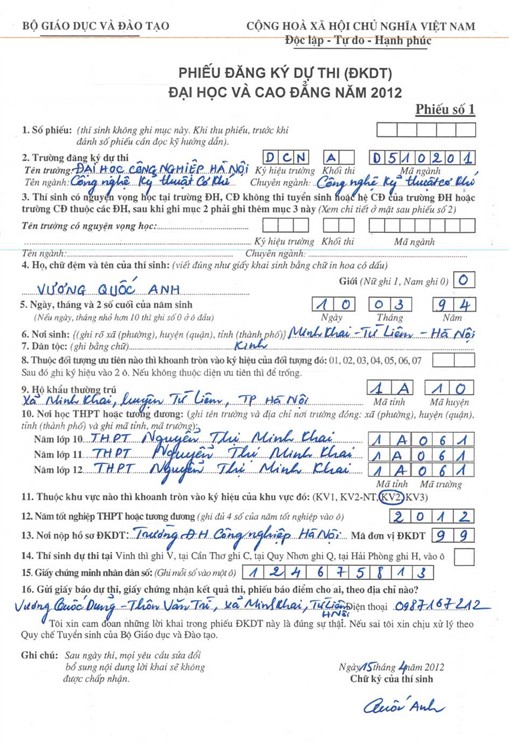 BỘ GIÁO DỤC VÀ ĐÀO TẠO
CỘNG HOÀ XÃ HỘI CHỦ NGHĨA VIỆT NAM
Độc lập - Tự do - Hạnh phúc
PHIẾU ĐĂNG KÝ DỰ THI (ĐKDT)
ĐẠI HỌC VÀ CAO ĐẲNG NĂM 2012
Phiếu số 1
1. Số phiếu: (thí sinh không ghi mục này. Khi thu phiếu, trước khi
đánh số phiếu cần đọc kỹ hướng dẫn).
2. Trường đăng ký dự thi D C N A D 5 1 0 2 0 1
Tên trường: ĐẠI HỌC CÔNG NGHIỆP HÀ NỘI Ký hiệu trường Khối thi Mã ngành
Tên ngành: Công nghệ Kỹ thuật Cơ Khí Chuyên ngành: Công nghệ Kỹ thuật cơ khí
3. Thí sinh có nguyện vọng học tại trường ĐH, CĐ không thi tuyển sinh hoặc hệ CĐ của trường ĐH hoặc
trường CĐ thuộc các ĐH, sau khi ghi mục 2 phải ghi thêm mục 3 này (Xem chi tiết ở mặt sau phiếu số 2)
Tên trường có nguyện vọng học:
Ký hiệu trường Khối thi Mã ngành
Tên ngành: Chuyên ngành:
4. Họ, chữ đệm và tên của thí sinh: (viết đúng như giấy khai sinh bằng chữ in hoa có dấu)
VƯƠNG QUỐC ANH Giới (Nữ ghi 1, Nam ghi 0) 0
5. Ngày, tháng và 2 số cuối của năm sinh 1 0 0 3 9 4
(Nếu ngày, tháng nhỏ hơn 10 thì ghi số 0 ở ô đầu) Ngày Tháng Năm
6. Nơi sinh: (ghi rõ xã (phường), huyện (quận), tỉnh (thành phố)) Minh Khai - Từ Liêm - Hà Nội
7. Dân tộc: (ghi bằng chữ) Kinh
8. Thuộc đối tượng ưu tiên nào thì khoanh tròn vào ký hiệu của đối tượng đó: 01, 02, 03, 04, 05, 06, 07
Sau đó ghi ký hiệu vào 2 ô. Nếu không thuộc diện ưu tiên thì để trống.
9. Hộ khẩu thường trú 1 A 1 0
Xã Minh Khai, huyện Từ Liêm, TP Hà Nội Mã tỉnh Mã huyện
10. Nơi học THPT hoặc tương đương: (ghi tên trường và địa chỉ nơi trường đóng: xã (phường), huyện (quận),
tỉnh (thành phố) và ghi mã tỉnh, mã trường):
Năm lớp 10 THPT Nguyễn Thị Minh Khai 1 A 0 6 1
Năm lớp 11 THPT Nguyễn Thị Minh Khai 1 A 0 6 1
Năm lớp 12 THPT Nguyễn Thị Minh Khai 1 A 0 6 1
Mã tỉnh Mã trường
11. Thuộc khu vực nào thì khoanh tròn vào ký hiệu của khu vực đó: (KV1, KV2-NT, KV2, KV3)
12. Năm tốt nghiệp THPT hoặc tương đương (ghi đủ 4 số của năm tốt nghiệp vào ô) 2 0 1 2
13. Nơi nộp hồ sơ ĐKDT: Trường ĐH Công nghiệp Hà Nội Mã đơn vị ĐKDT 9 9
14. Thí sinh dự thi tại Vinh thì ghi V, tại Cần Thơ ghi C, tại Quy Nhơn ghi Q, tại Hải Phòng ghi H, vào ô
15. Giấy chứng minh nhân dân số: (Ghi mỗi số vào một ô) 1 2 4 6 7 5 8 1 3
16. Gửi giấy báo dự thi, giấy chứng nhận kết quả thi, phiếu báo điểm cho ai, theo địa chỉ nào?
Vương Quốc Dung - Thôn Văn Trì, xã Minh Khai, Từ Liêm, HNội Điện thoại 0987167212
Tôi xin cam đoan những lời khai trong phiếu ĐKDT này là đúng sự thật. Nếu sai tôi xin chịu xử lý theo
Quy chế Tuyển sinh của Bộ Giáo dục và Đào tạo.
Ghi chú: Sau ngày thi, mọi yêu cầu sửa đổi
bổ sung nội dung lời khai sẽ không
được chấp nhận.
Ngày 15 tháng 4 năm 2012
Chữ ký của thí sinh
Quốc Anh